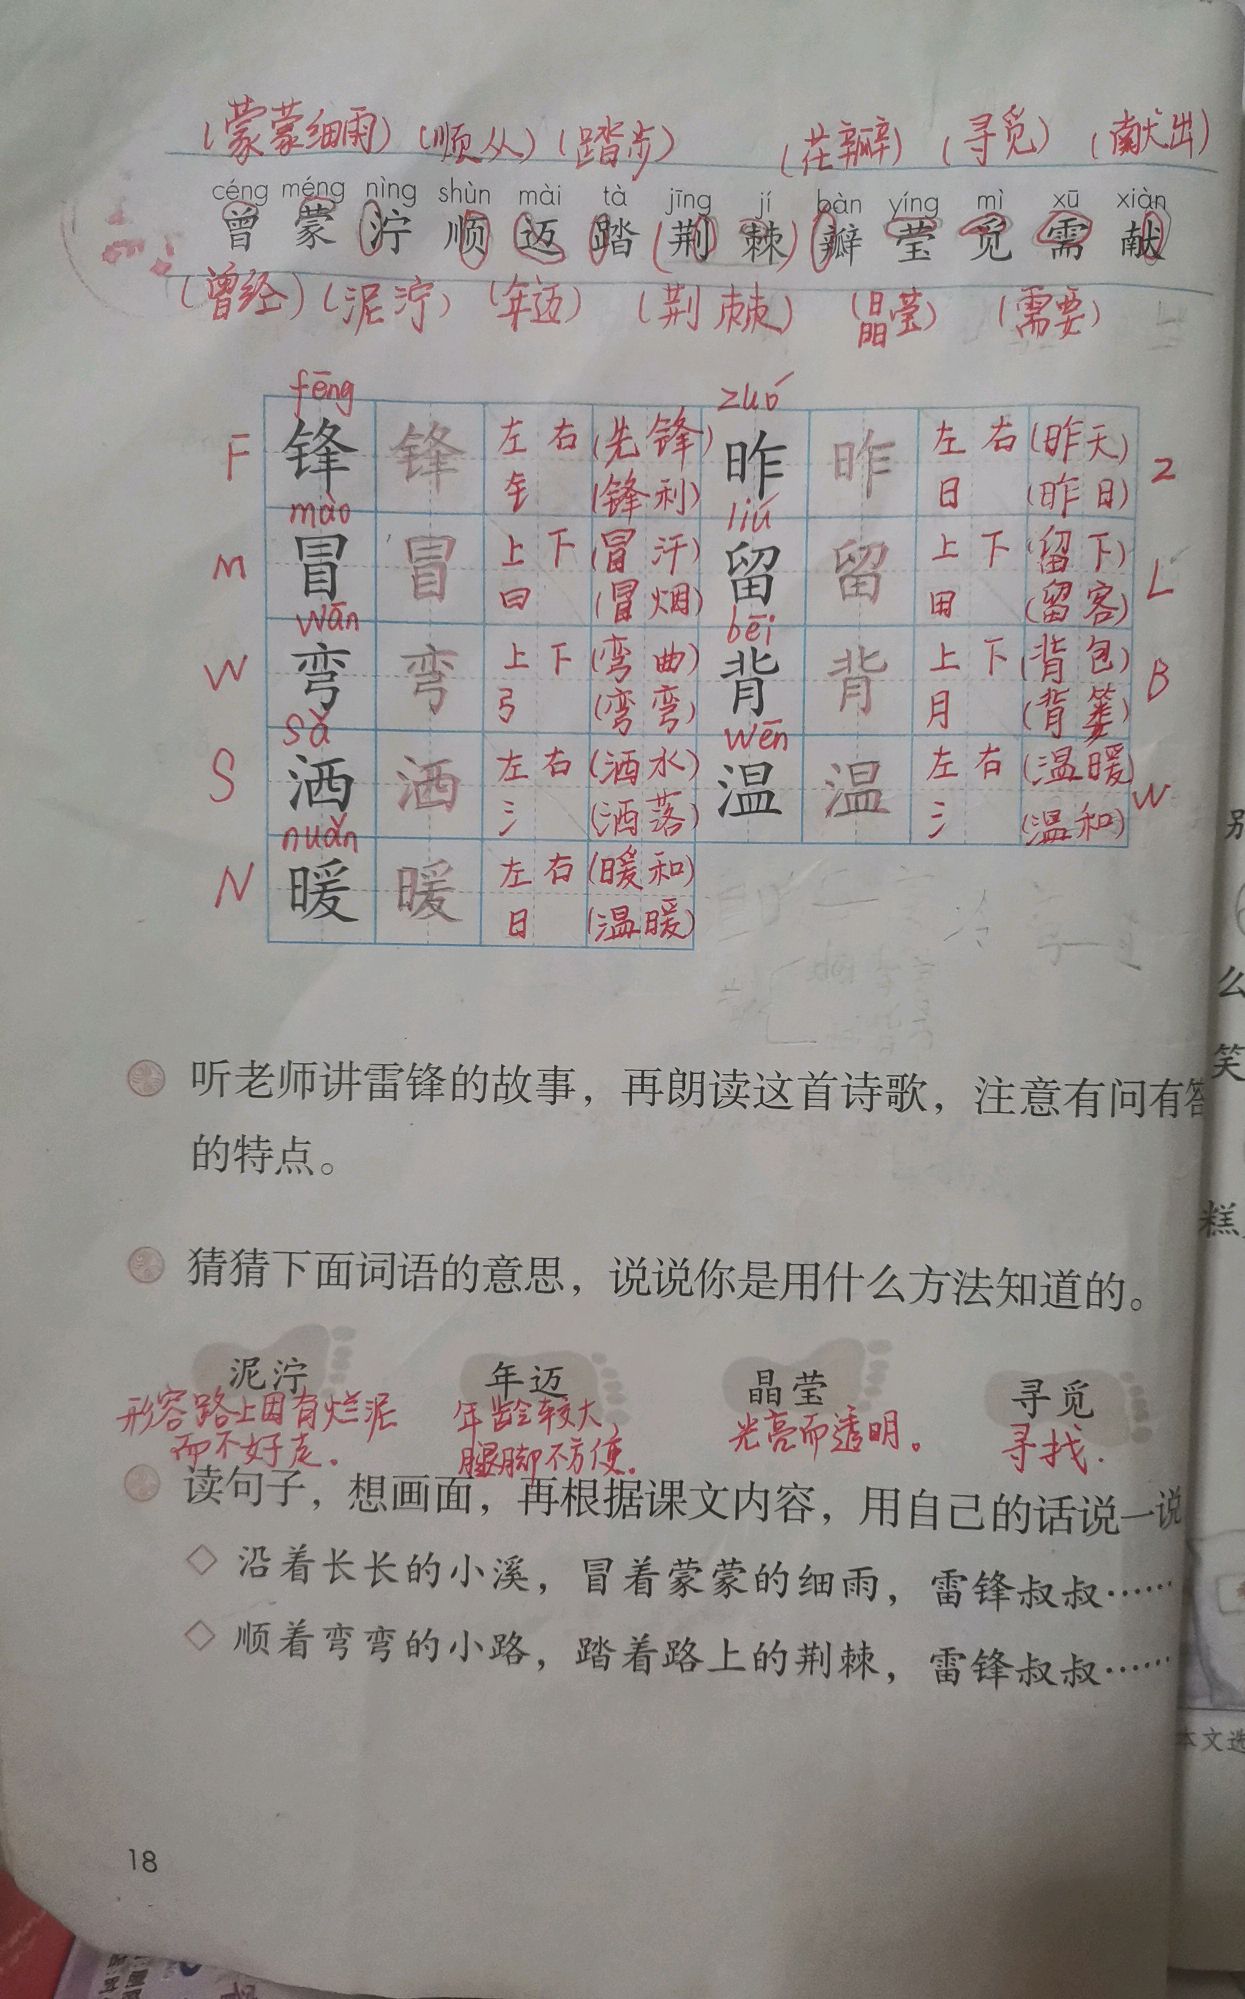 (蒙蒙细雨) (顺从) (踏步) (花瓣) (寻觅) (献出)
céng méng nìng shùn mài tà jīng jí bàn yíng mì xū xiàn
曾 蒙 泞 顺 迈 踏 (荆 棘) 瓣 莹 觅 需 献
(曾经) (泥泞) (年迈) (荆棘) (晶莹) (需要)
fēng zuó
F 锋 锋 左右 (先锋) 昨 昨 左右 (昨天) Z
钅 (锋利) 日 (昨日)
mào liú
M 冒 冒 上下 (冒汗) 留 留 上下 (留下) L
曰 (冒烟) 田 (留客)
wān bēi
W 弯 弯 上下 (弯曲) 背 背 上下 (背包) B
弓 (弯弯) 月 (背篓)
sǎ wēn
S 洒 洒 左右 (洒水) 温 温 左右 (温暖) W
氵 (洒落) 氵 (温和)
nuǎn
N 暖 暖 左右 (暖和)
日 (温暖)
听老师讲雷锋的故事，再朗读这首诗歌，注意有问有答
的特点。
猜猜下面词语的意思，说说你是用什么方法知道的。
泥泞 年迈 晶莹 寻觅
形容路上因有烂泥 年龄较大 光亮而透明。 寻找.
而不好走. 腿脚不方便.
读句子，想画面，再根据课文内容，用自己的话说一说
◇ 沿着长长的小溪，冒着蒙蒙的细雨，雷锋叔叔……
◇ 顺着弯弯的小路，踏着路上的荆棘，雷锋叔叔……
18
别
么
笑
糕
本文选